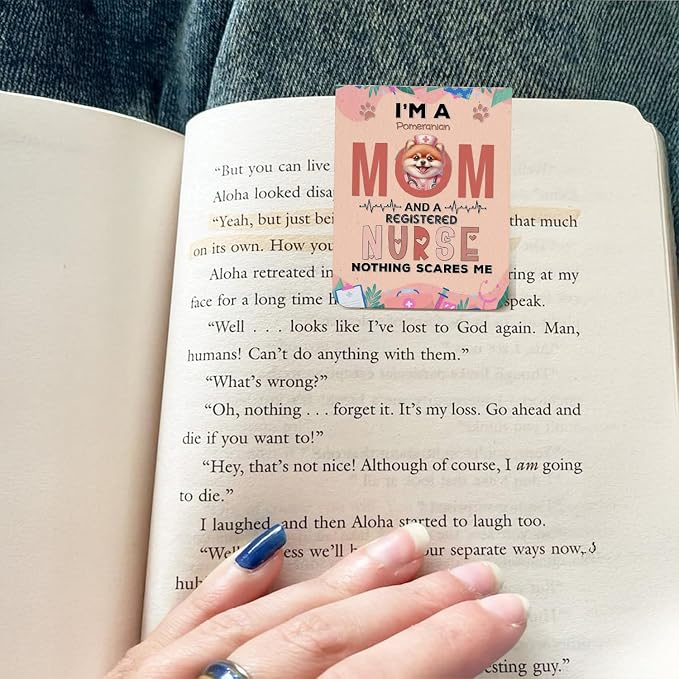 I'M A
Pomeranian
MOM
AND A
REGISTERED
NURSE
NOTHING SCARES ME
"But you can live
Aloha looked disa
"Yeah, but just bei that much
on its own. How you
Aloha retreated in ring at my
face for a long time speak.
"Well . . . looks like I've lost to God again. Man,
humans! Can't do anything with them."
"What's wrong?"
"Oh, nothing . . . forget it. It's my loss. Go ahead and
die if you want to!"
"Hey, that's not nice! Although of course, I am going
to die."
I laughed, and then Aloha started to laugh too.
"Well ess we'll our separate ways now,
hu
esting guy."